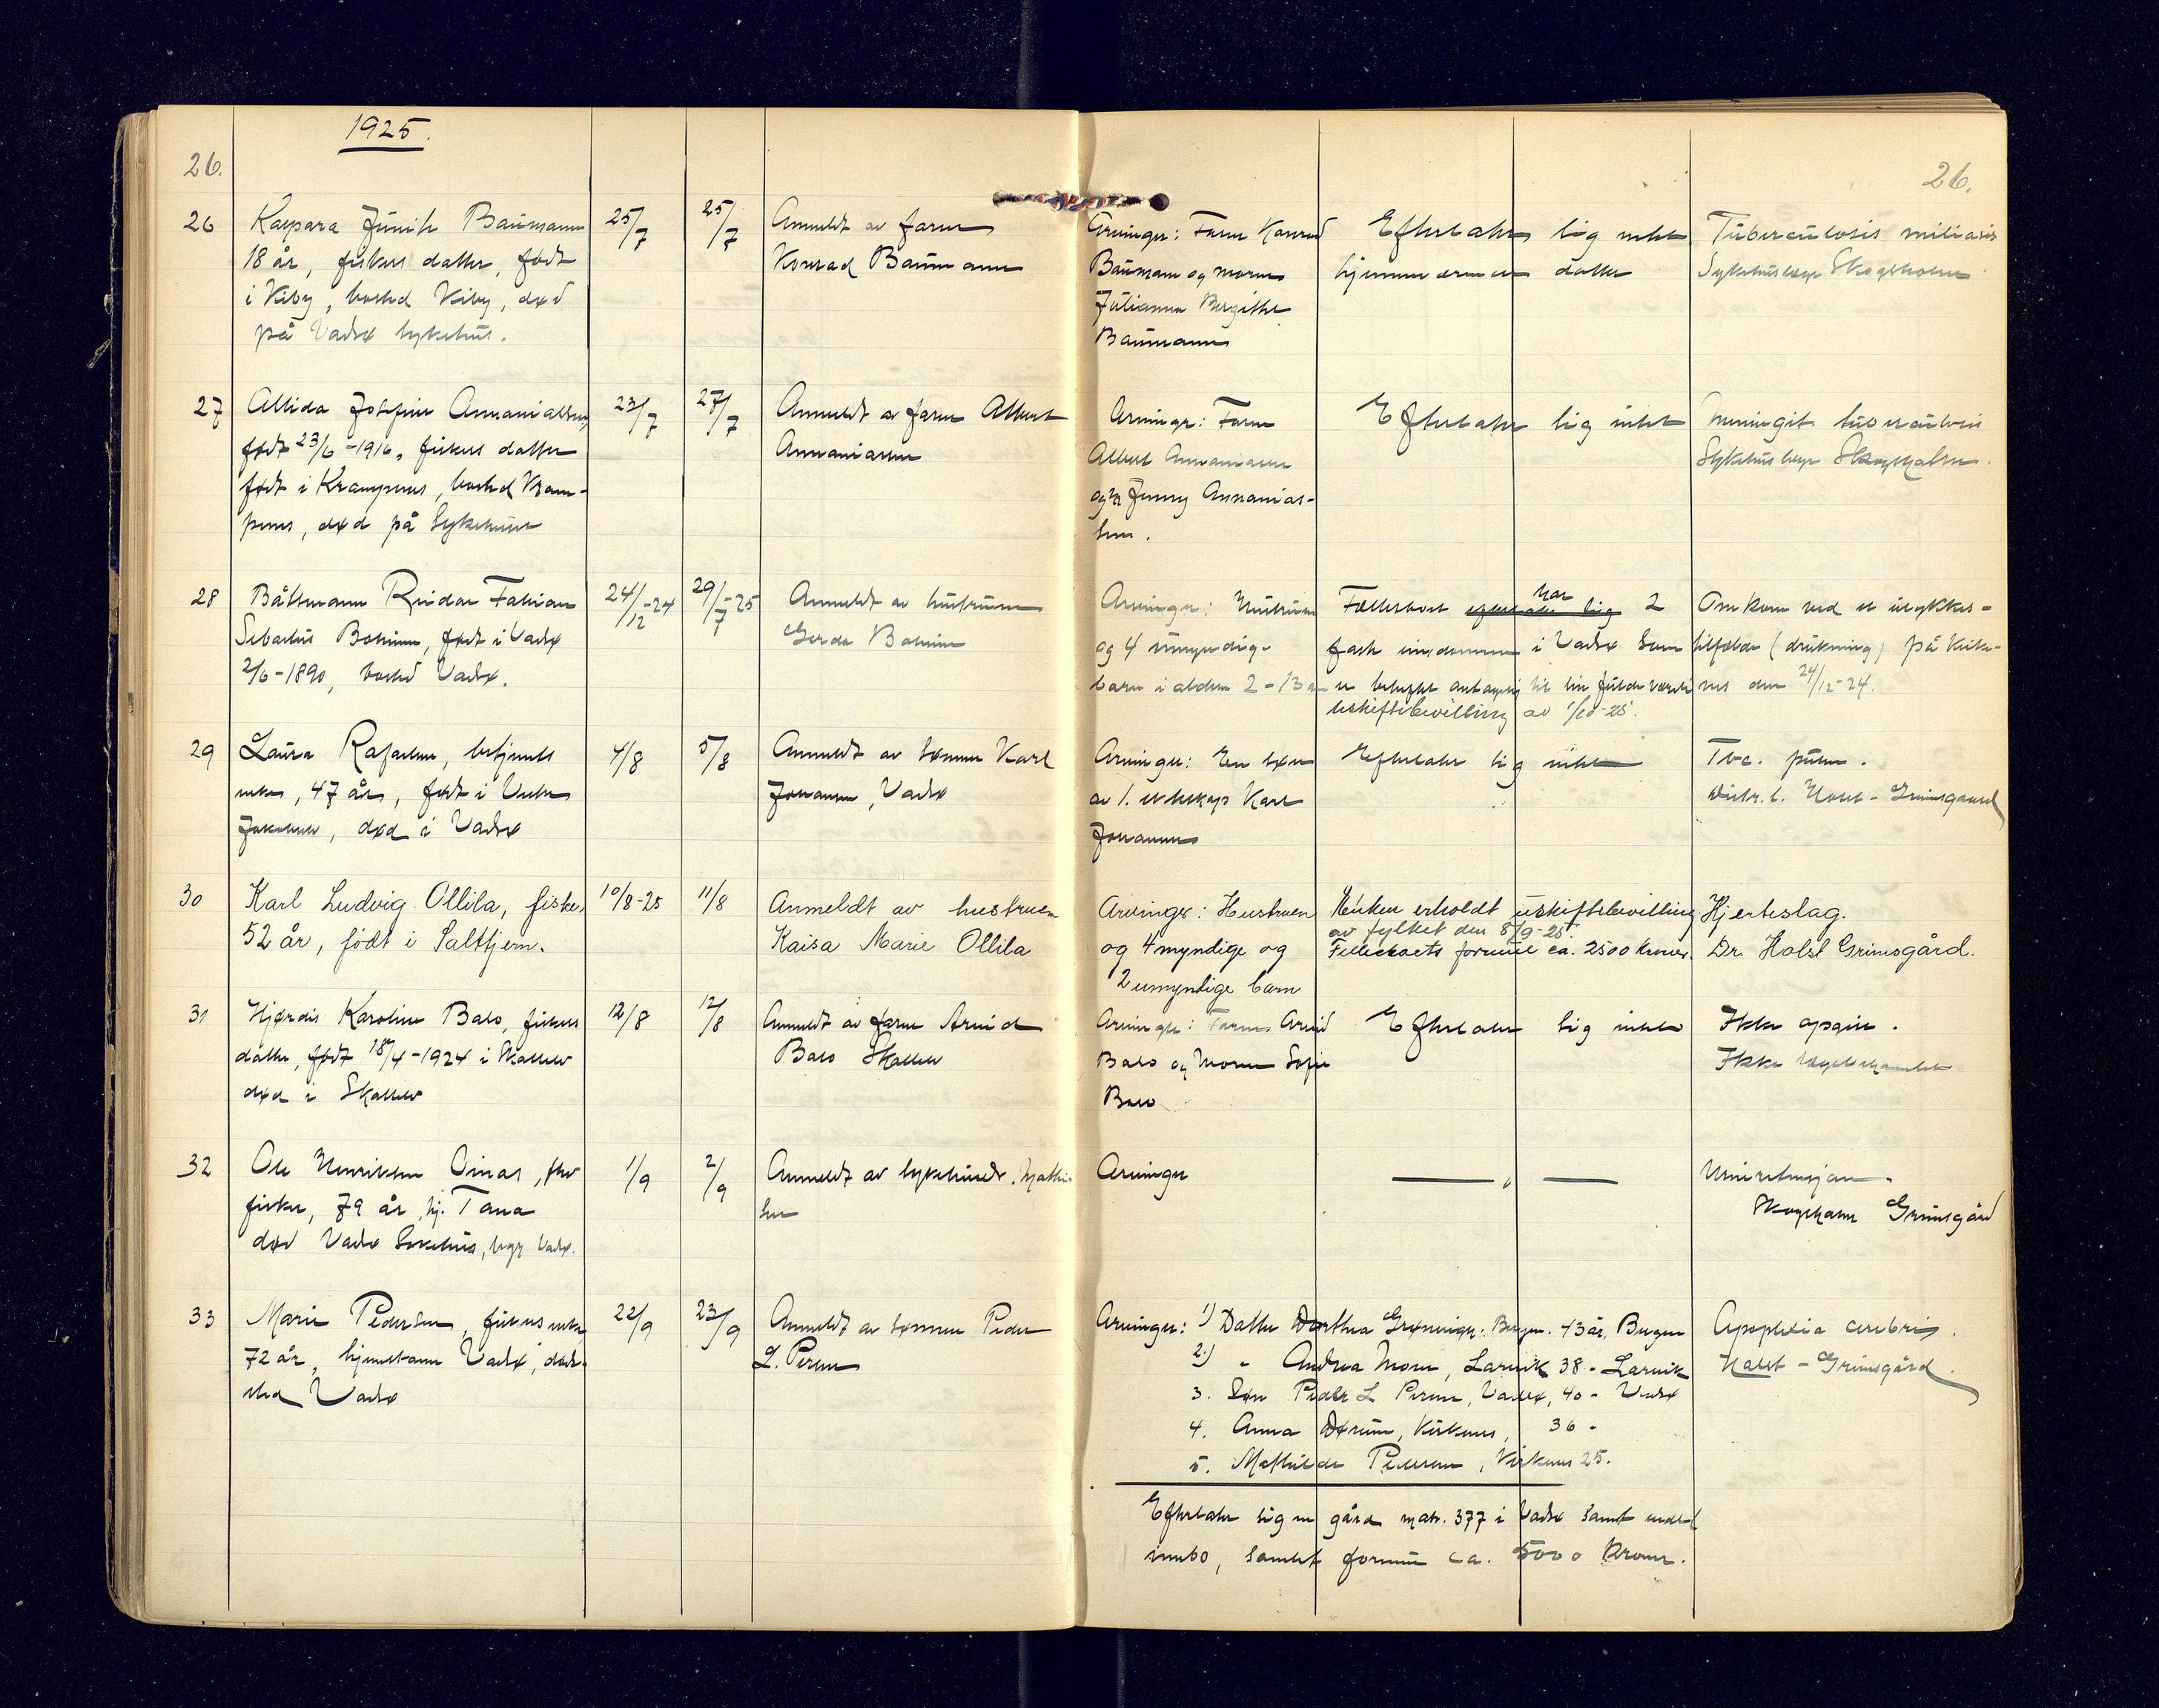 1925.
26.
26.
26
Kaspara Junith Baumann
18 år, fiskers datter, født
i Kiby, bosted Kiby, død
på Vadsø sykehus.
25/7
25/7
Anmeldt av faren
Konrad Baumann
Arvinger: Faren Konrad
Baumann og moren
Julianna Bergithe
Baumann
Efterlater sig intet
hjemmeværende datter
Tuberculosis miliaris
Sykehuslæge Skogsholm
27
Josefine Annaniassen,
født 23/6-1916, fiskers datter
født i Krampenes, bosted Kram-
penes, død på Sykehuset
23/7
27/7
Anmeldt av faren Albert
Annaniassen
Arvinger: Faren
Albert Annaniassen
og m Jenny Annanias-
sen.
Efterlater sig intet
Meningit tuberculosis
Sykehuslæge Skogsholm.
28
Båtsmann Reidar Fabian
Sebastius, født i Vadsø
2/6-1890, bosted Vadsø.
24/12-24
29/7-25
Anmeldt av hustruen
Gerda
Arvinger: Hustruen
og 4 umyndige
barn i alderen 2-13 år
Fellesboet efterlater sig har 2
faste eiendommer i Vadsø som
er beheftet antagelig til sin fulde værdi
uskiftebevilling av 1/10-25.
Omkom ved et ulykkes-
tilfælde (drukning) på Kirke-
nes den 24/12-24.
29
Laura Rafaelsen, betjents
enke, 47 år, født i Vestre
Jakobselv, død i Vadsø
4/8
5/8
Anmeldt av sønnen Karl
Johansen, Vadsø
Arvinger: En søn
av 1. ekteskap Karl
Johansen
Efterlater sig intet
Tbc. pulm.
Distr. l. Holst-Grimsgaard
30
Karl Ludvig Ollila, fisker,
52 år, født i Saltfjern.
10/8-25
11/8
Anmeldt av hustruen
Kaisa Marie Ollila
Arvinger: Hustruen
og 4 myndige og
2 umyndige barn
Enken erholdt uskiftebevilling
av fylket den 8/9-25.
Fellesboets formue ca. 2500 kroner.
Hjerteslag.
Dr. Holst Grimsgård.
31
Hjørdis Karoline Balo, fiskers
datter, født 18/4-1924 i Skallelv
død i Skallelv
12/8
12/8
Anmeldt av faren Arvid
Balo Skallelv
Arvinger: Faren Arvid
Balo og moren Sofie
Balo
Efterlater sig intet
Ikke opgit.
Ikke lægebehandlet
32
Ole Henriksen Oinas, fhv
fisker, 79 år, hj. Tana
død Vadsø Sykehus, begr Vadsø.
1/9
2/9
Anmeldt av sykehusdr. Mathi-
sen
Arvinger
— " —
Skogsholm Grimsgård
33
Marie Pedersen, fiskers enke
72 år, hjemstavn Vadsø, døds-
sted Vadsø
22/9
23/9
Anmeldt av sønnen Peder
L. Persen
Arvinger: 1) Datter Dorthea Bergen. 43 år, Bergen
2) " Andrea Moen, Larvik 38 - Larvik
3. Søn Peder L Persen, Vadsø, 40 - Vadsø
4. Anna Dørum, Kirkenes, 36 -
5. Mathilde Pedersen, Kirkenes 25.
Efterlater sig en gård matr. 377 i Vadsø samt endel
innbo, samlet formue ca. 5000 kroner.
Apoplexia cerebri.
Holst-Grimsgård.